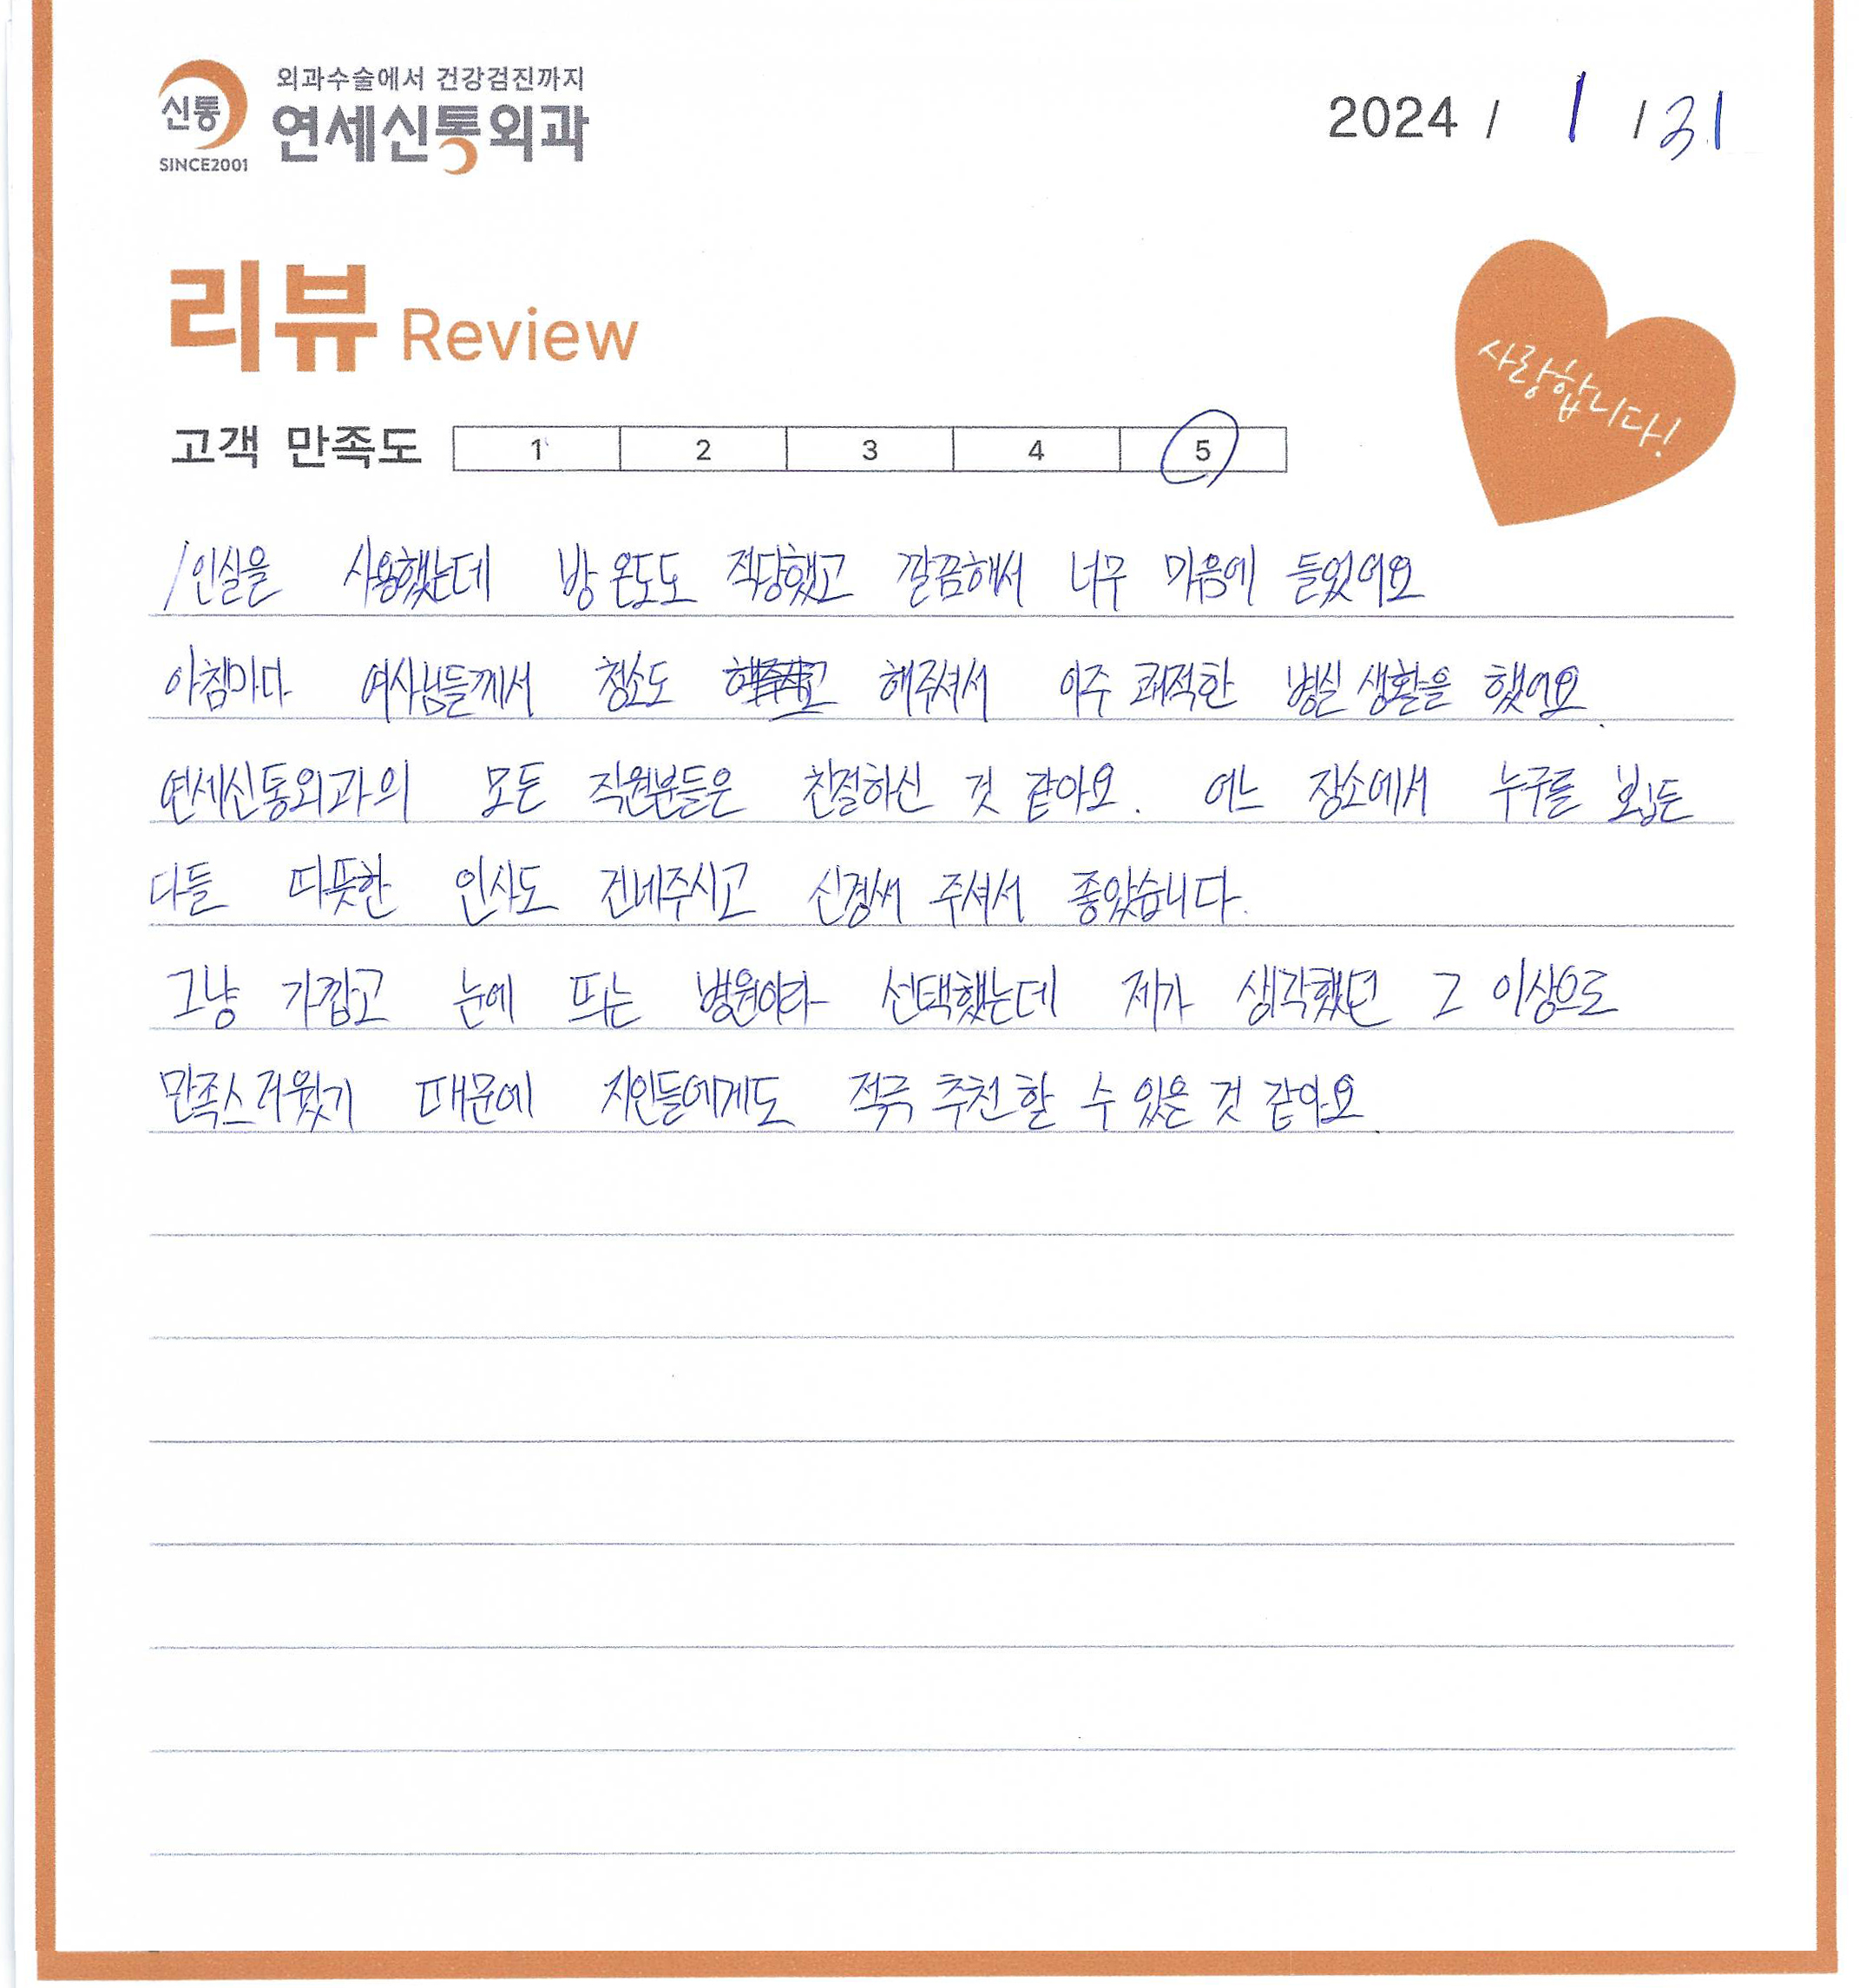 외과수술에서 건강검진까지
신통
연세신통외과
SINCE2001
2024 / 1 / 31
리뷰 Review
사랑합니다!
고객 만족도 1 2 3 4 5
1인실을 사용했는데 방 온도도 적당했고 깔끔해서 너무 마음에 들었어요
아침마다 여사님들께서 청소도 해주셔서 아주 쾌적한 병실 생활을 했어요.
연세신통외과의 모든 직원분들은 친절하신 것 같아요. 어느 장소에서 누구를 뵙든
다들 따뜻한 인사도 건네주시고 신경써 주셔서 좋았습니다.
그냥 가깝고 눈에 띄는 병원이라 선택했는데 제가 생각했던 그 이상으로
만족스러웠기 때문에 지인들에게도 적극 추천할 수 있을 것 같아요.